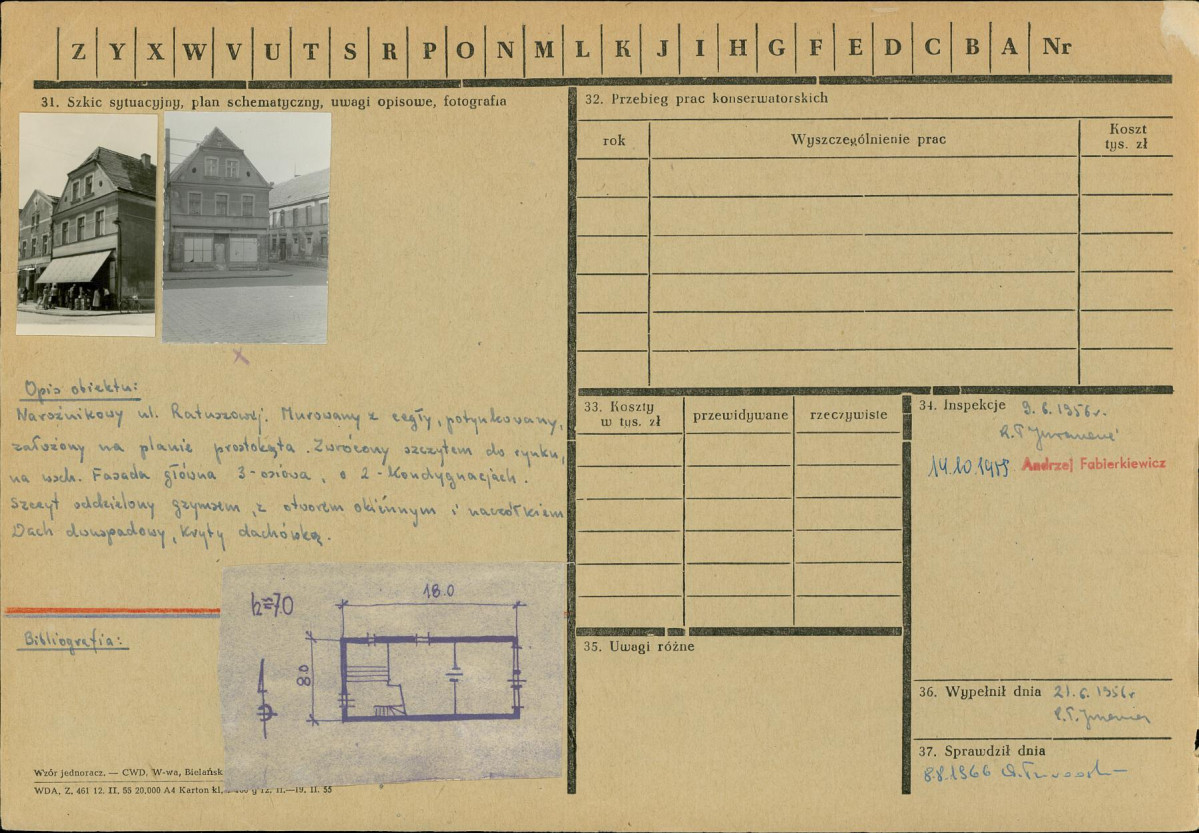 Z Y X W V U T S R P O N M L K J I H G F E D C B A Nr
31. Szkic sytuacyjny, plan schematyczny, uwagi opisowe, fotografia
Opis obiektu:
Narożnikowy ul. Ratuszowej. Murowany z cegły, potynkowany,
założony na planie prostokąta. Zwrócony szczytem do rynku,
na wsch. Fasada główna 3-osiowa, o 2-kondygnacjach.
Szczyt oddzielony gzymsem, z otworem okiennym i naczółkiem
Dach dwuspadowy, kryty dachówką.
Bibliografia:
h=7.0
18.0
8.0
Wzór jednoracz. — CWD, W-wa, Bielańsk
WDA, Z. 461 12. II. 55 20,000 A4 Karton kl. 12. II.—19. II. 55
32. Przebieg prac konserwatorskich
rok
Wyszczególnienie prac
Koszt
tys. zł
33. Koszty
w tys. zł
przewidywane
rzeczywiste
34. Inspekcje 9.6.1956r.
14.10.1975 Andrzej Fabierkiewicz
35. Uwagi różne
36. Wypełnił dnia 21.6.1956r
37. Sprawdził dnia
8.8.1966